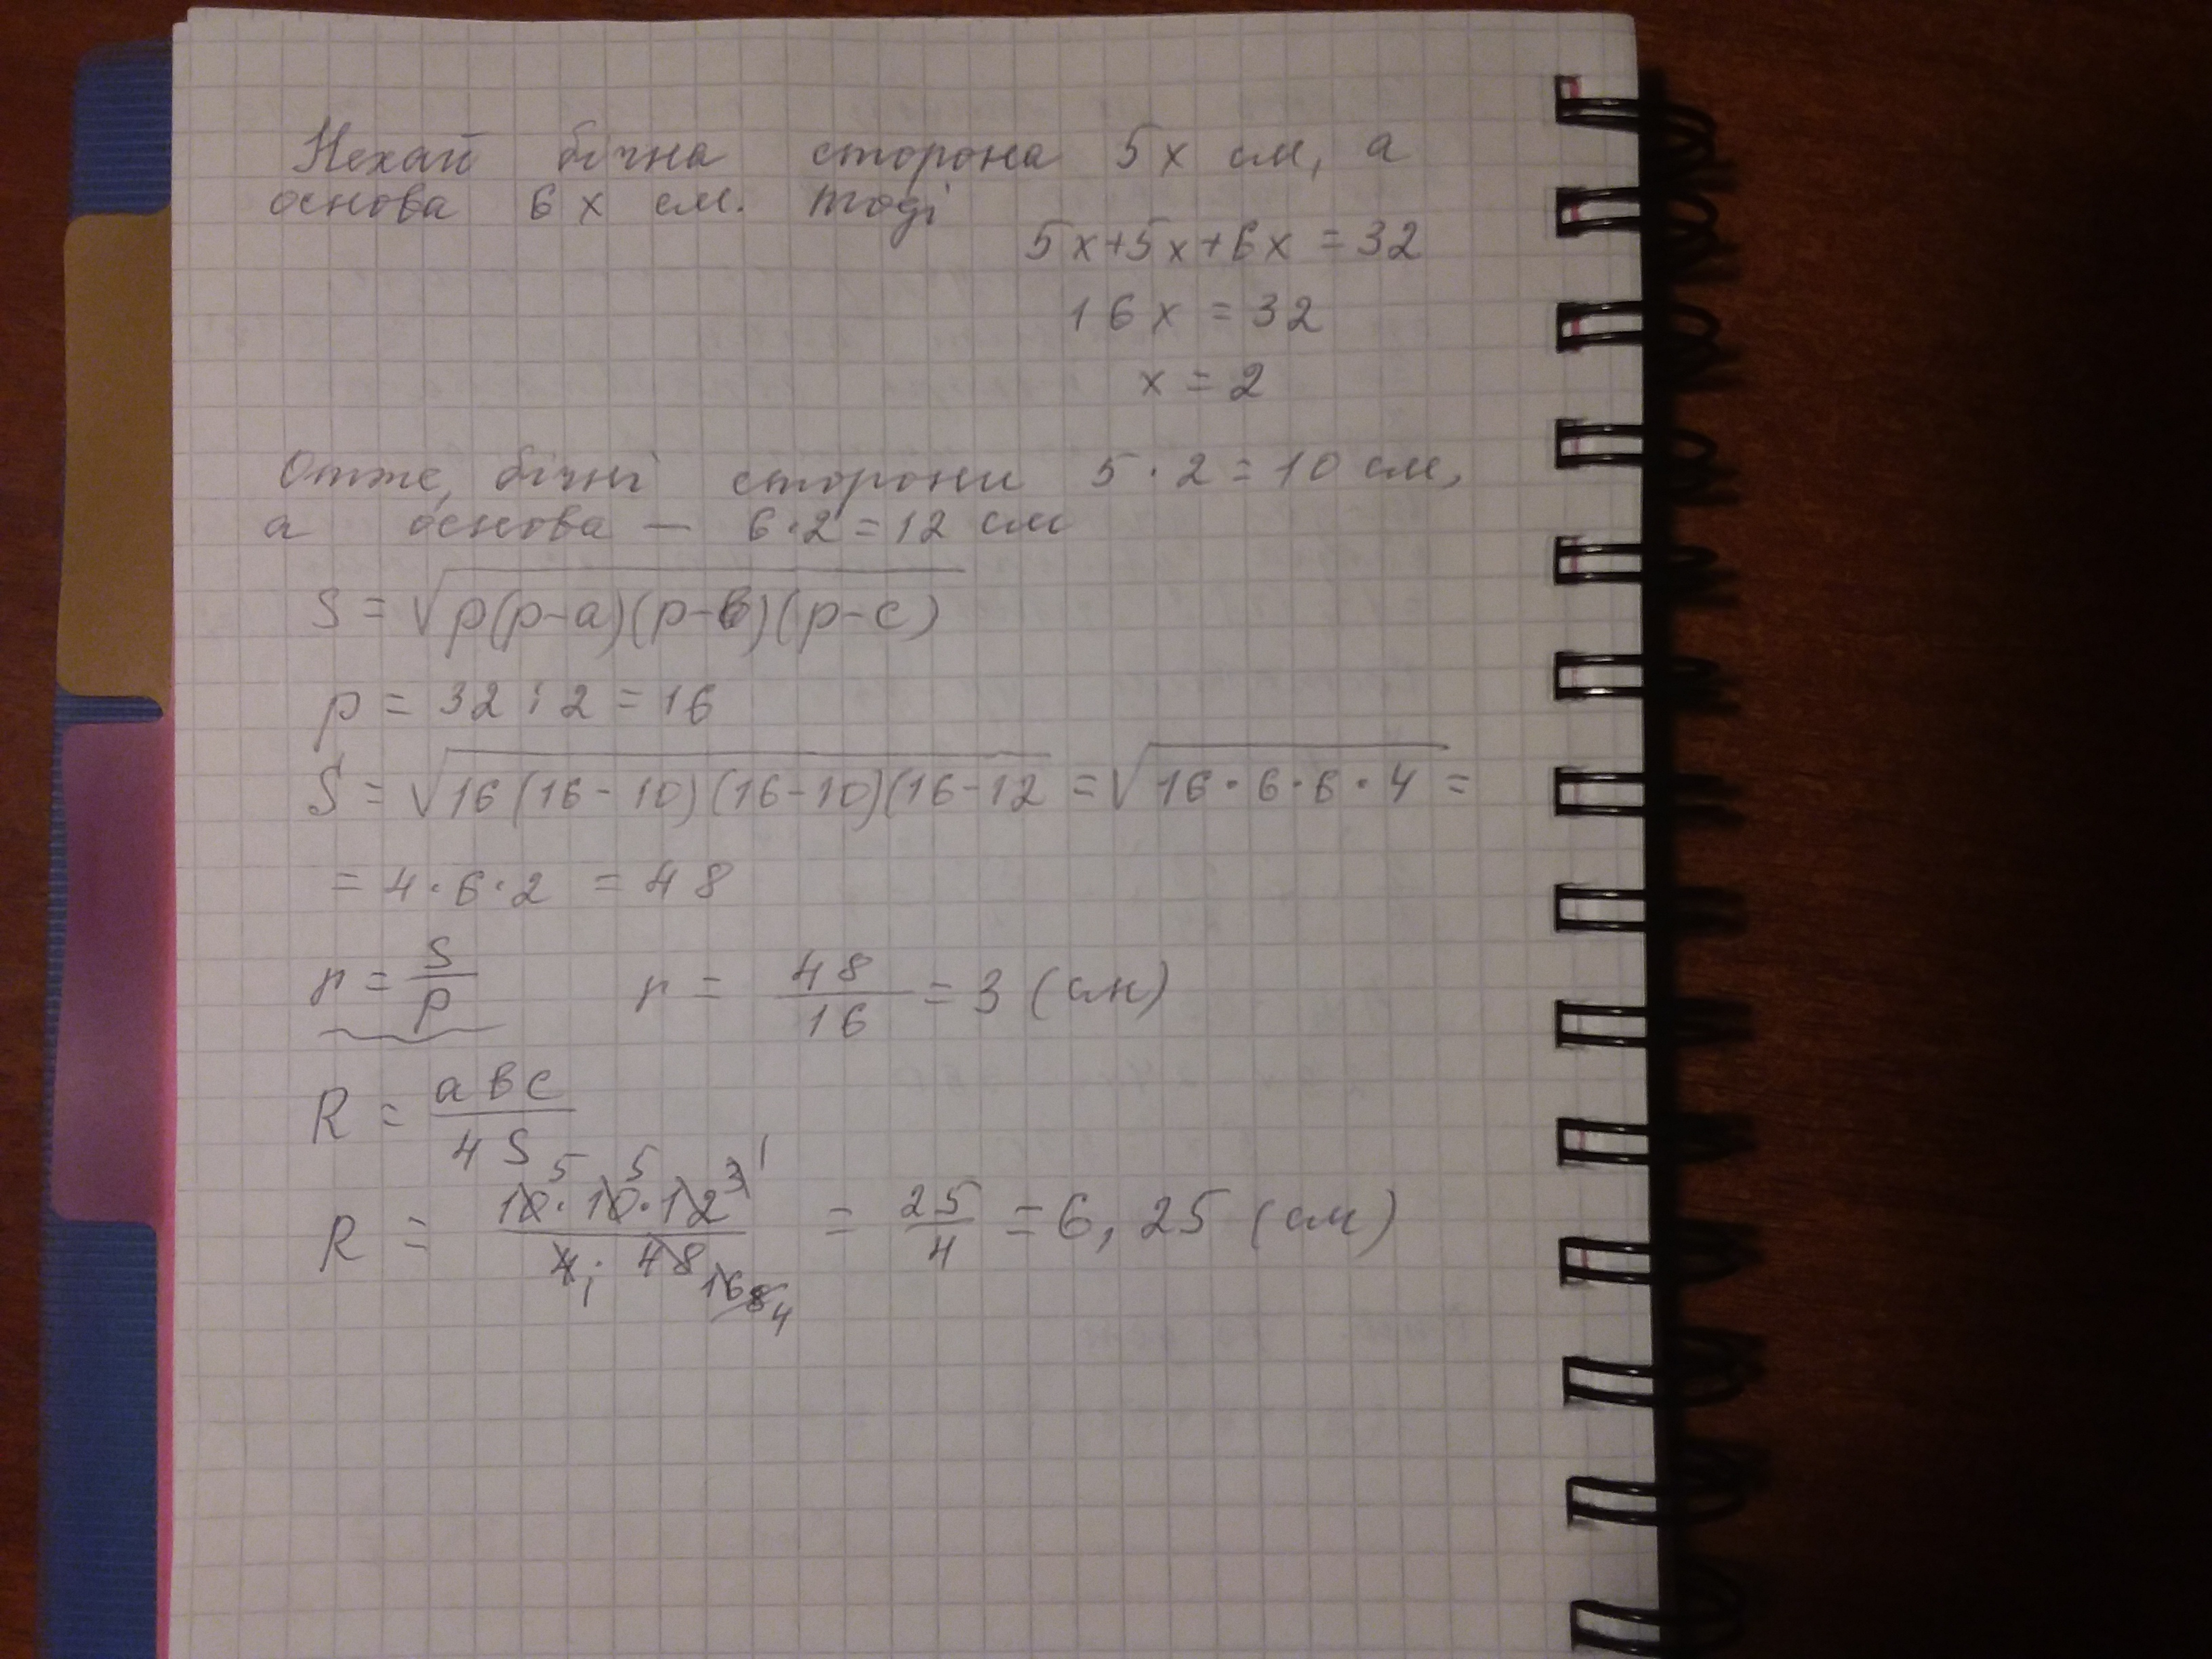 Нехай бічна сторона 5x см, а
основа 6x см. тоді
5x+5x+6x=32
16x=32
x=2
Отже, бічні сторони 5·2=10 см,
а основа — 6·2=12 см
S=√p(p-a)(p-b)(p-c)
p=32:2=16
S=√16(16-10)(16-10)(16-12 =√16·6·6·4 =
=4·6·2 =48
r=S/p r=48/16=3 (см)
R=abc/4S
R=10·10·12/4·48 =25/4=6,25 (см)